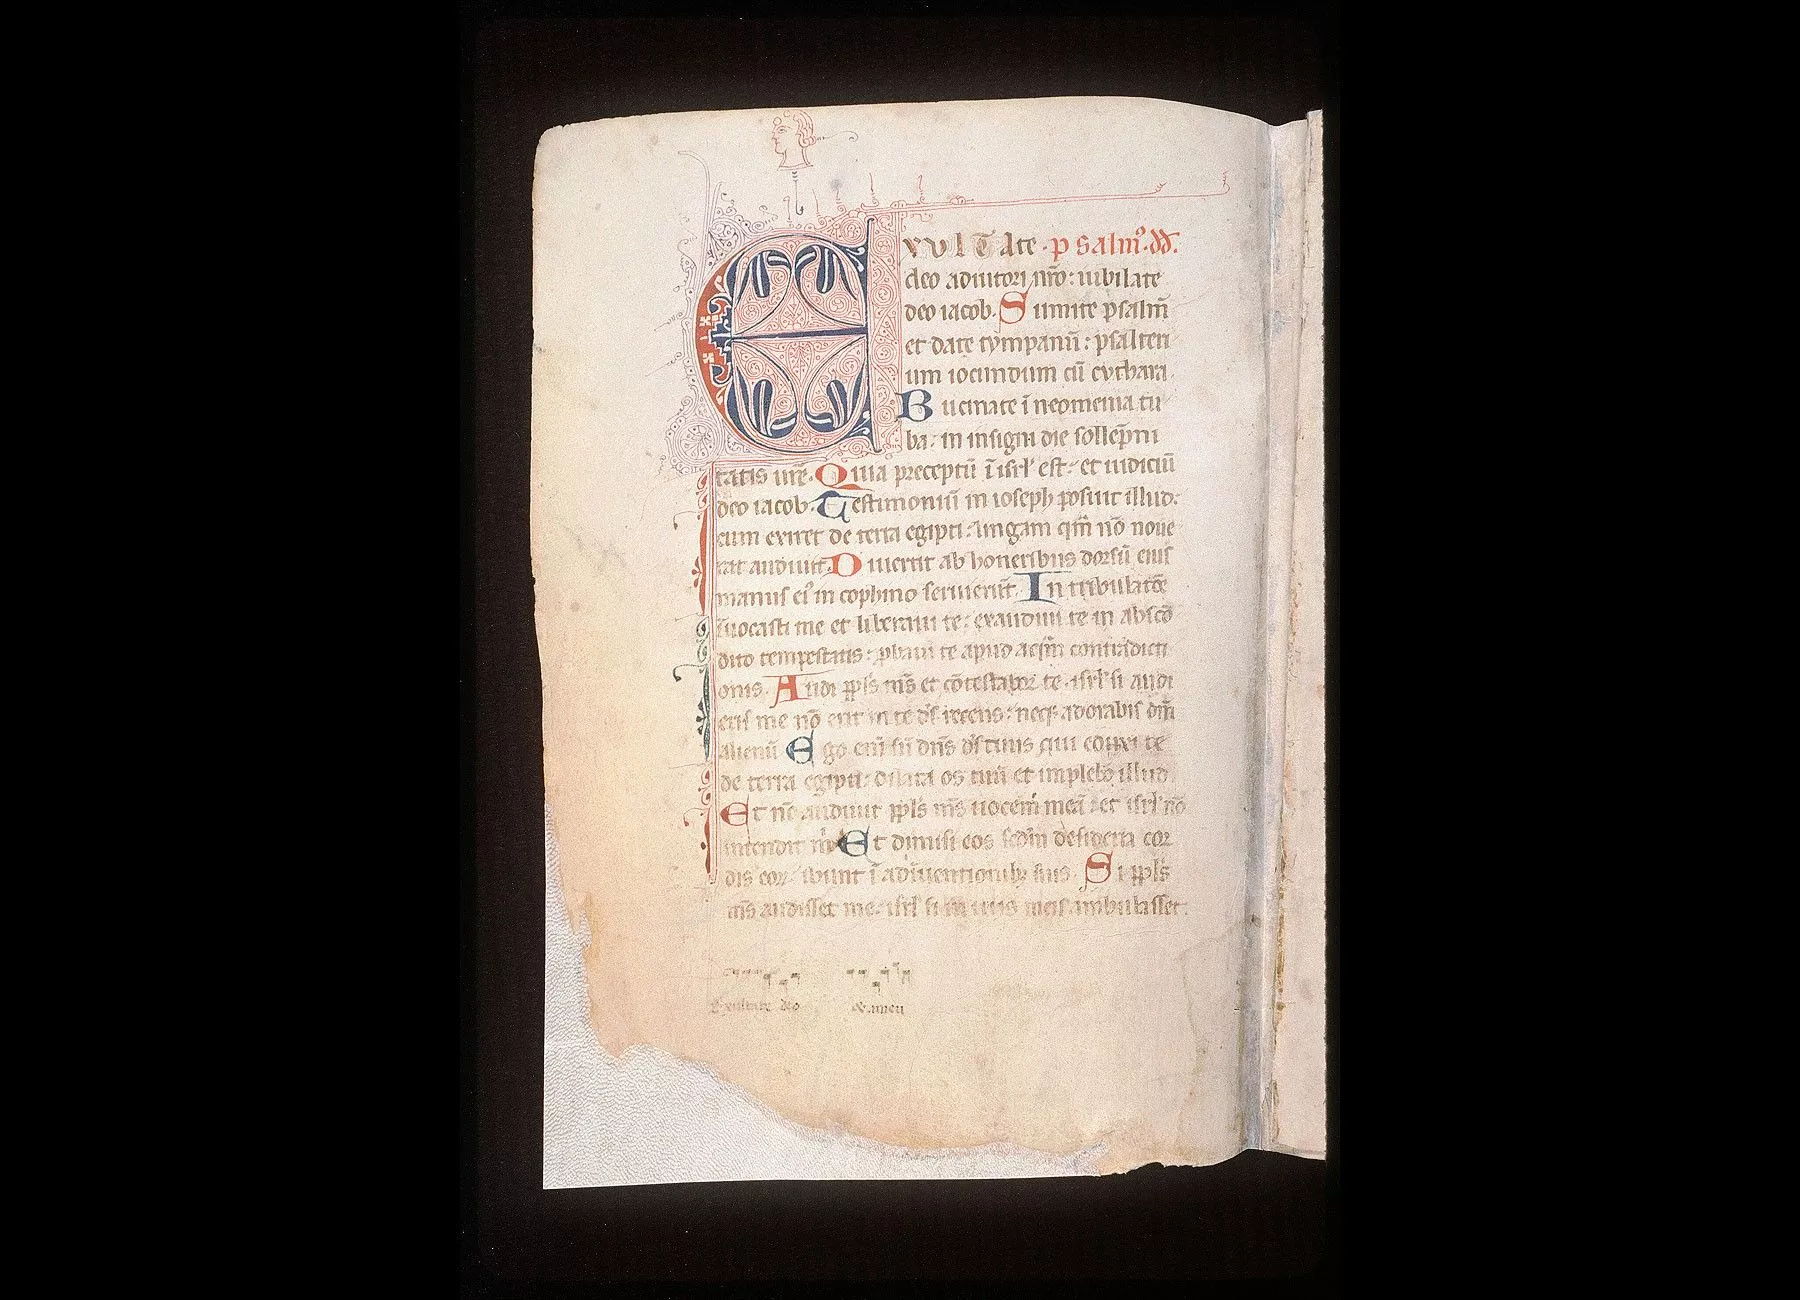 Exultate · psalm9. dd.
deo adiutori nr̄o: iubilate
deo iacob. Sumite psalm̄
et date tympanū: psalteri
um iocundum cū cythara.
Bucinate ī neomenia tu
ba: in insigni die sollēpni
tatis ur̄e. Quia preceptū ī isrl' est: et iudiciū
deo iacob. Testimoniū in ioseph posuit illud:
cum exiret de terra egipti: lingam qm̄ nō noue
rat audiuit. Diuertit ab honeribus dorsū eius
manus ei9 in cophino seruierūt. In tribulatōe
īuocasti me et liberaui te: exaudiui te in absco
dito tempestatis: pbaui te apud aqm̄ contradicti
onis. Audi ppl's m̄s et cōtestabor te. isrl' si audi
eris me nō erit in te ds̄ recens: neq adorabis dm̄
alienū Ego eni sū dn̄s ds̄ tuus qui eduxi te
de terra egipti: dilata os tuū et implebo illud.
Et nō audiuit ppl's m̄s uocem meā: et isrl' nō
intendit m̄ Et dimisi eos scdm desideria cor
dis eor: ibunt ī adīuentionib; suis. Si ppl's
m̄s audisset me: isrl' si in uiis meis ambulasset.
Exultate deo